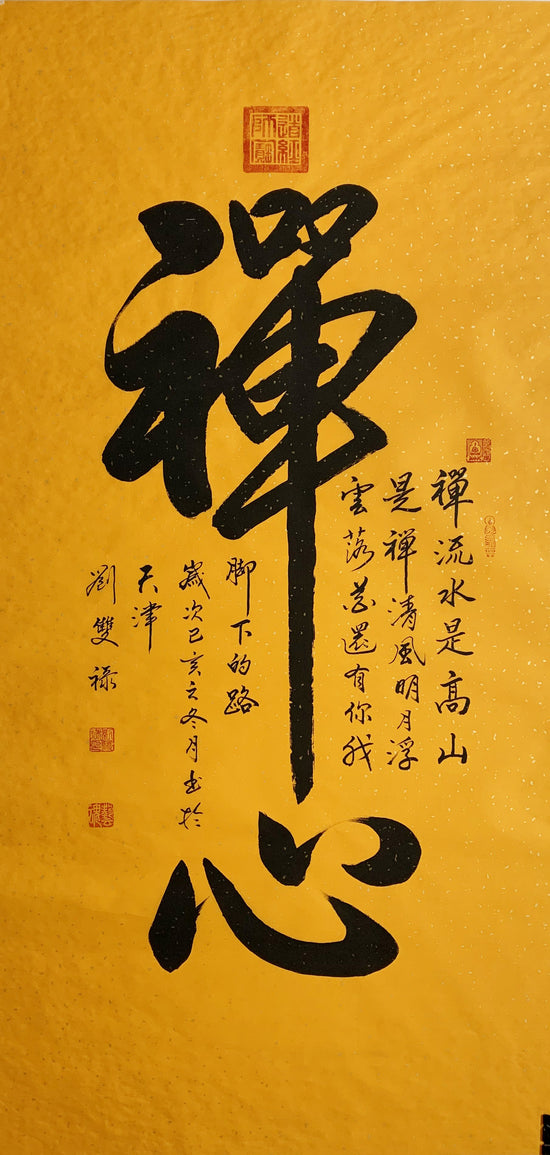 道經師寶
禪心
禪流水是高山
是禪清風明月浮
雲落花還有你我
脚下的路
歲次己亥之冬月書於
天津
劉雙祿